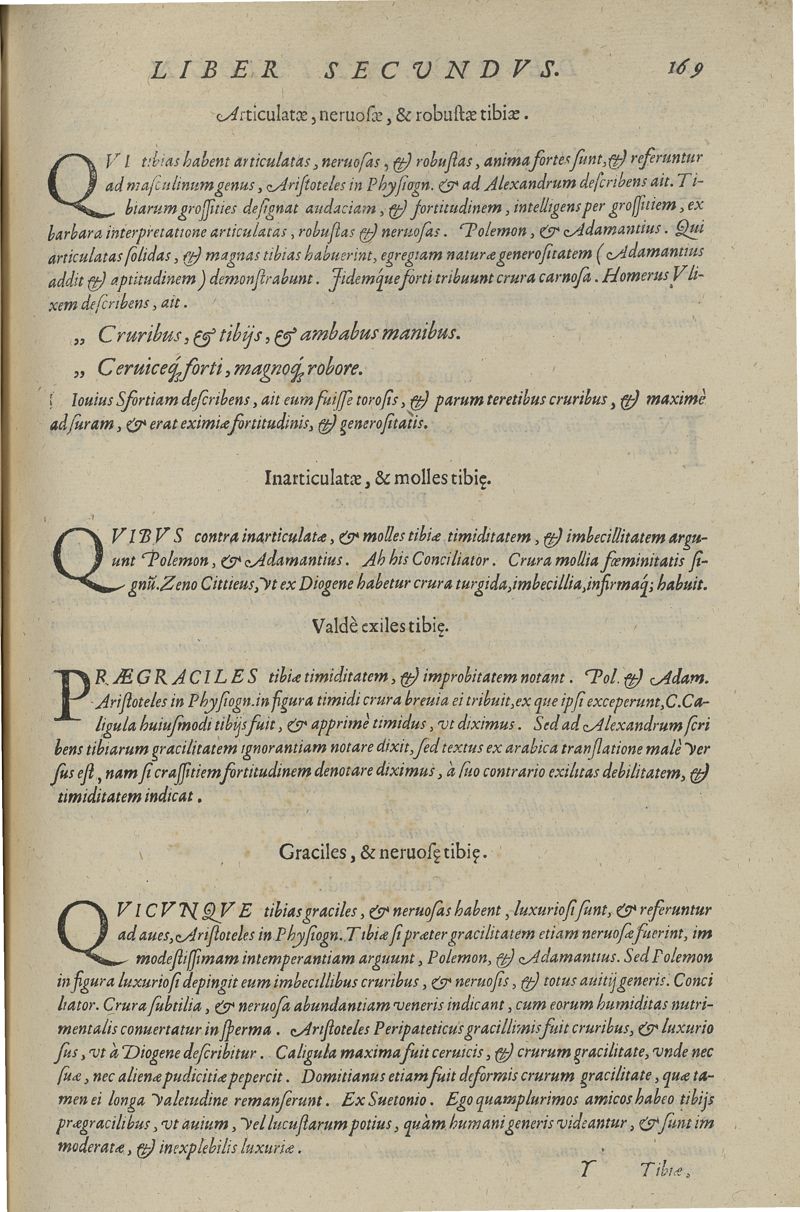 LIBER SECUNDVS. 169
Articulatæ, neruosæ, & robustæ tibiæ.
QVI tibias habent articulatas, neruosas, & robustas, anima fortes sunt, & referuntur
ad masculinum genus, Aristoteles in Physiogn. & ad Alexandrum describens ait. Ti-
biarum grossities designat audaciam, & fortitudinem, intelligens per grossitiem, ex
barbara interpretatione articulatas, robustas & neruosas. Polemon, & Adamantius. Qui
articulatas solidas, & magnas tibias habuerint, egregiam naturæ generositatem (Adamantius
addit & aptitudinem) demonstrabunt. Iidemque forti tribuunt crura carnosa. Homerus Vli-
xem describens, ait.
„ Cruribus, & tibijs, & ambabus manibus.
„ Ceruiceq́; forti, magnoq́; robore.
Iouius Sfortiam describens, ait eum fuisse torosis, & parum teretibus cruribus, & maximè
ad suram, & erat eximiæ fortitudinis, & generositatis.
Inarticulatæ, & molles tibię.
QVIBVS contra inarticulatæ, & molles tibiæ timiditatem, & imbecillitatem argu-
unt Polemon, & Adamantius. Ab his Conciliator. Crura mollia fœminitatis si-
gnū. Zeno Cittieus, vt ex Diogene habetur crura turgida, imbecillia, infirmaq́; habuit.
Valdè exiles tibię.
PRÆGRACILES tibiæ timiditatem, & improbitatem notant. Pol. & Adam.
Aristoteles in Physiogn. in figura timidi crura breuia ei tribuit, ex que ipsi exceperunt, C. Ca-
ligula huiusmodi tibijs fuit, & apprimè timidus, vt diximus. Sed ad Alexandrum scri
bens tibiarum gracilitatem ignorantiam notare dixit, sed textus ex arabica translatione malè ver
sus est, nam si crassitiem fortitudinem denotare diximus, à suo contrario exilitas debilitatem, &
timiditatem indicat.
Graciles, & neruosę tibię.
QVICVNQVE tibias graciles, & neruosas habent, luxuriosi sunt, & referuntur
ad aues, Aristoteles in Physiogn. Tibiæ si præter gracilitatem etiam neruosæ fuerint, im
modestissimam intemperantiam arguunt, Polemon, & Adamantius. Sed Polemon
in figura luxuriosi depingit eum imbecillibus cruribus, & neruosis, & totus auitij generis. Conci
liator. Crura subtilia, & neruosa abundantiam veneris indicant, cum eorum humiditas nutri-
mentalis conuertatur in sperma. Aristoteles Peripateticus gracillimis fuit cruribus, & luxurio
sus, vt à Diogene describitur. Caligula maxima fuit ceruicis, & crurum gracilitate, vnde nec
suæ, nec alienæ pudicitiæ pepercit. Domitianus etiam fuit deformis crurum gracilitate, quæ ta-
men ei longa valetudine remanserunt. Ex Suetonio. Ego quamplurimos amicos habeo tibijs
prægracilibus, vt auium, vel lucustarum potius, quàm humani generis videantur, & sunt im
moderatæ, & inexplebilis luxuriæ.
Y Tibiæ,